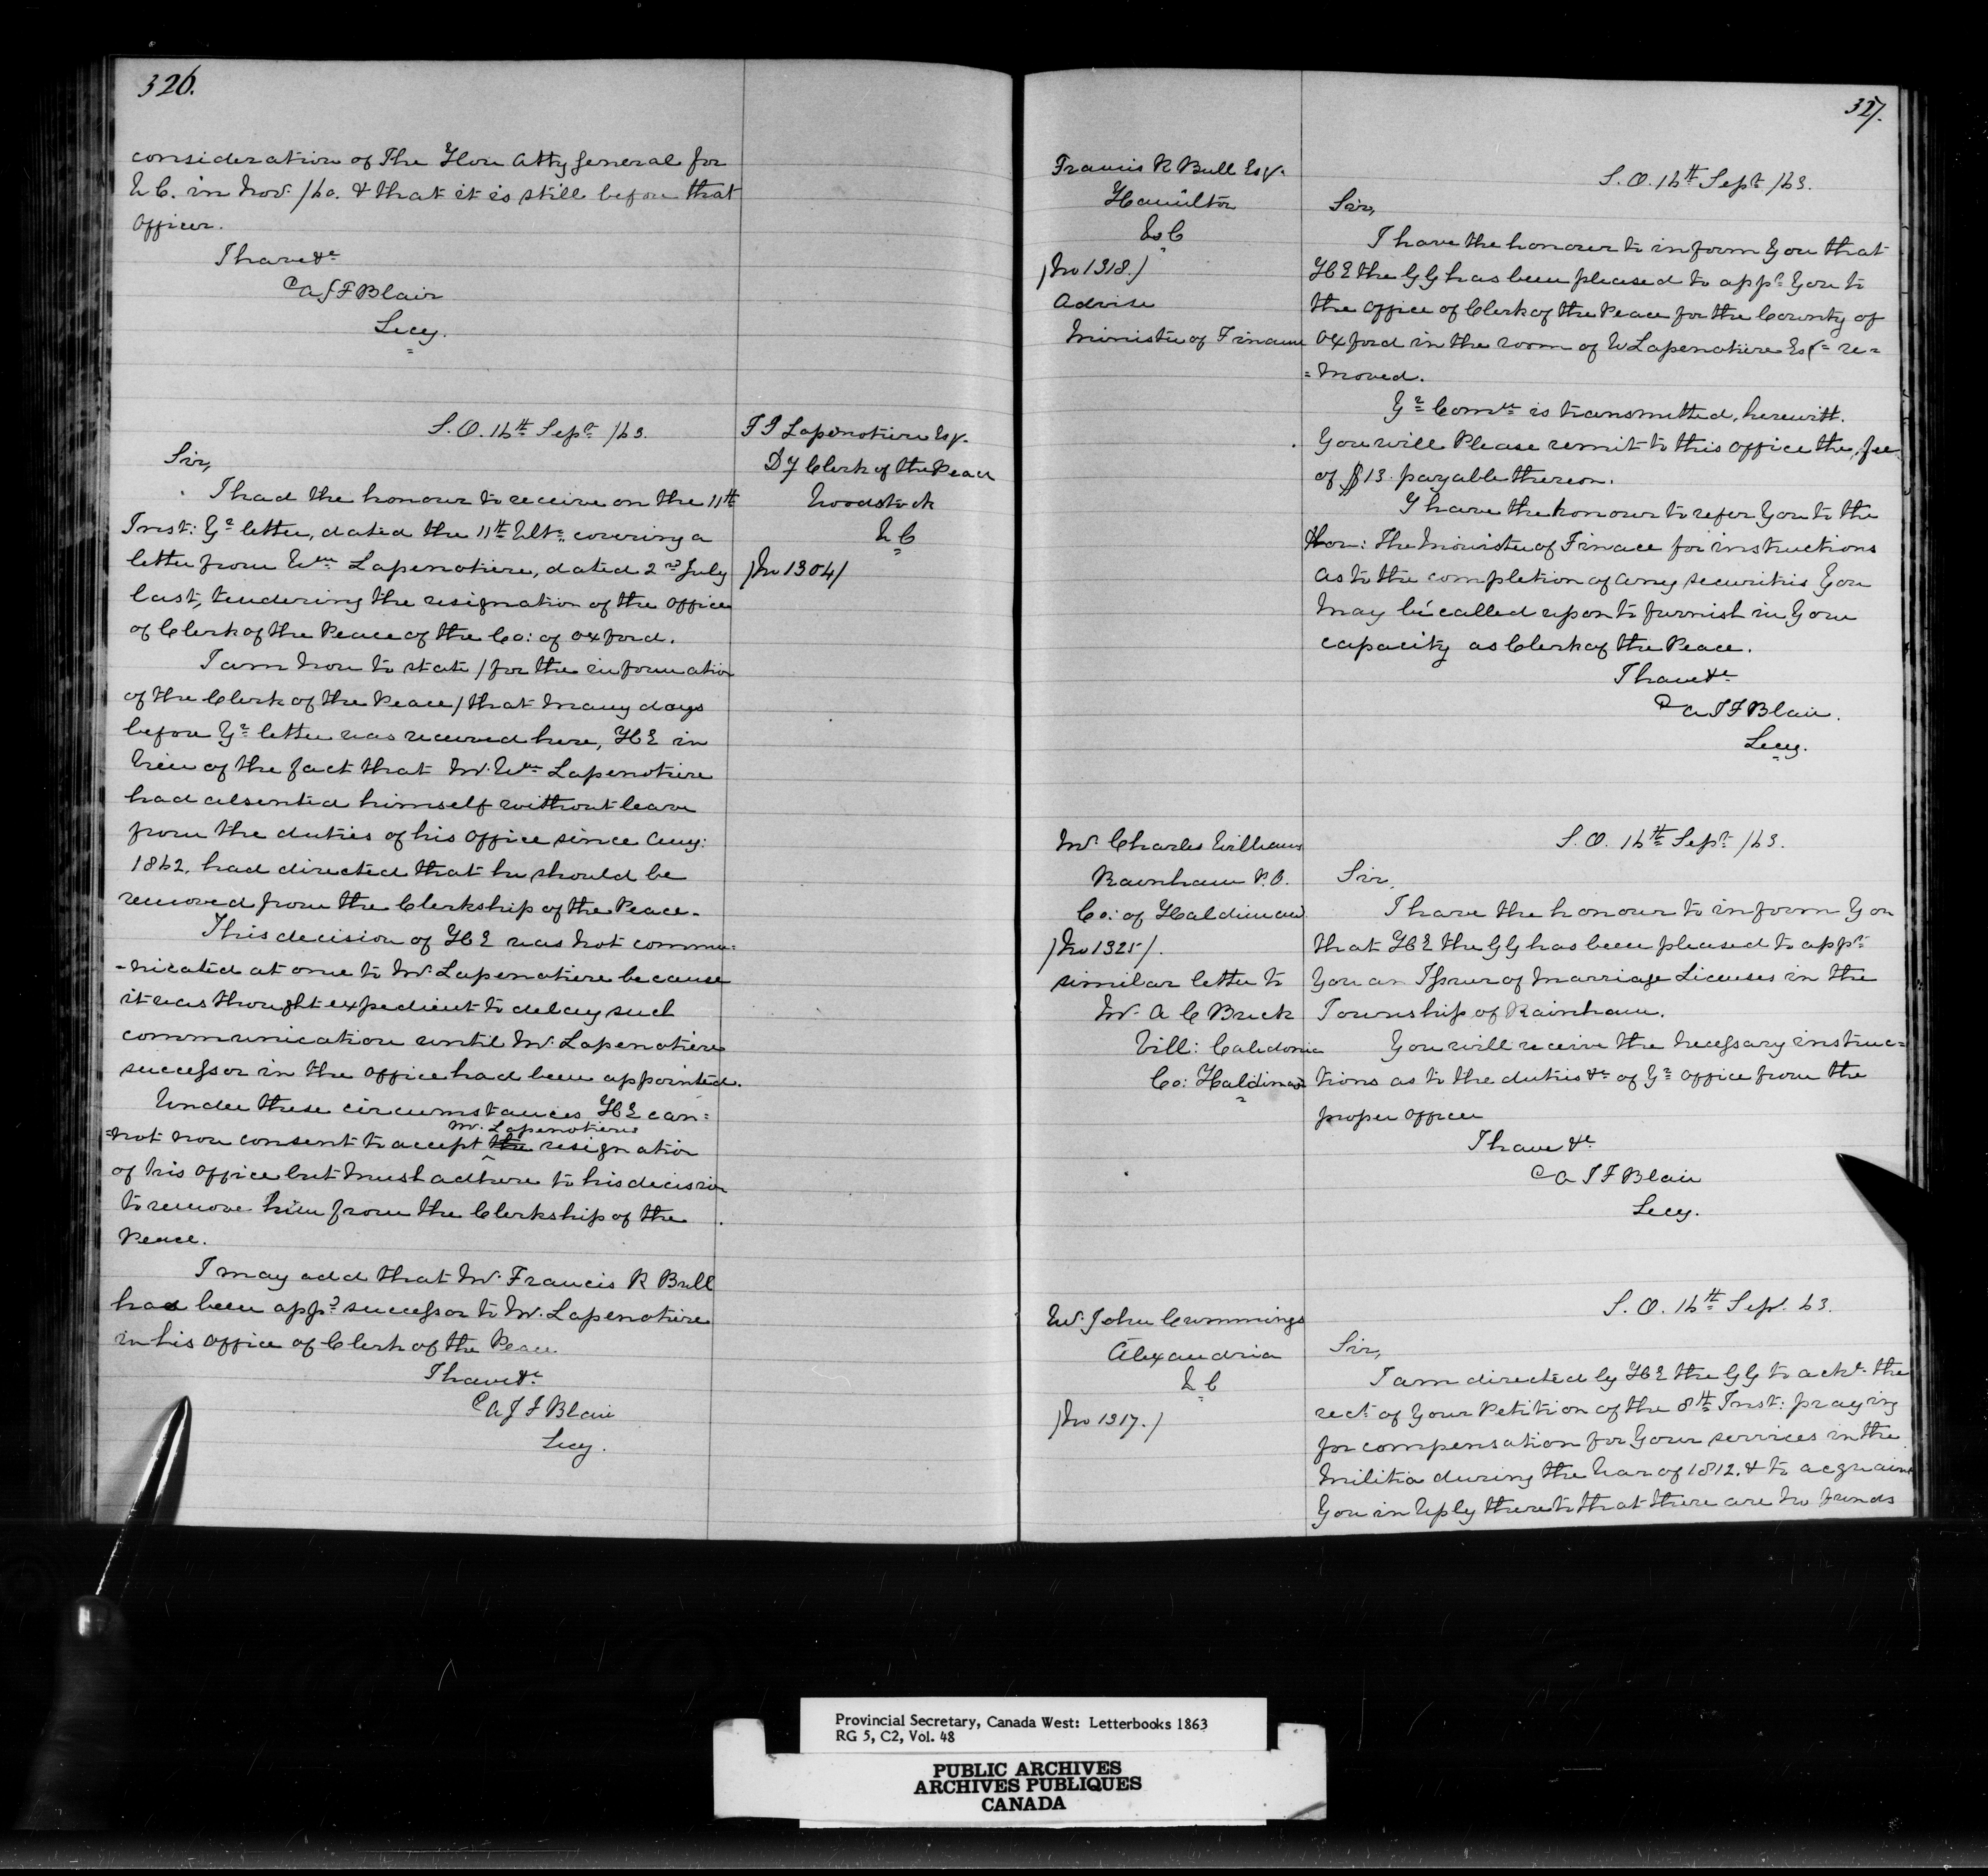 326.
consideration of The Hon Atty General for
U C. in Nov. /60. & that it is still before that
Officer.
I have &c
A J F Blair
Secy.
S. O. 16th Sepr /63.
T I Lapenotiere Esq.
Dy Clerk of the Peace
Woodstock
U C
/No 1304/
Sir,
I had the honour to receive on the 11th
Inst: Yr letter, dated the 11th Ulto, covering a
letter from Wm Lapenotiere, dated 2nd July
last, tendering the resignation of the office
of Clerk of the Peace of the Co: of Oxford.
I am now to state / for the information
of the Clerk of the Peace / that many days
before Yr letter was received here, HE in
view of the fact that Mr. Wm Lapenotiere
had absented himself without leave
from the duties of his office since Aug:
1862, had directed that he should be
removed from the Clerkship of the Peace.
This decision of HE was not commu-
-nicated at once to Mr. Lapenotiere because
it was thought expedient to delay such
communication until Mr. Lapenotiere
successor in the office had been appointed.
Under these circumstances HE can=
Mr. Lapenotieres
=not now consent to accept the resignation
of his office but must adhere to his decision
to remove him from the Clerkship of the
Peace.
I may add that Mr. Francis R Bull
has been appd successor to Mr. Lapenotiere
in his office of Clerk of the Peace
I have &c
A J F Blair
Secy.
327.
Francis R Bull Esq.
Hamilton
U C
/No 1318./
Advise
Minister of Finance
S. O. 16th Sept /63.
Sir,
I have the honour to inform You that
HE the GG has been pleased to appt You to
the office of Clerk of the Peace for the County of
Oxford in the room of W Lapenotiere Esqr re=
=moved.
Yr Comn is transmitted, herewith.
You will Please remit to this office the fee
of $13. payable thereon.
I have the honour to refer You to the
Hon: The Minister of Finace for instructions
as to the completion of any securities You
may be called upon to furnish in Your
capacity as Clerk of the Peace.
I have &c
A J F Blair.
Secy.
Mr. Charles Williams
Rainham P.O.
Co: of Haldimand
/No 1325/.
similar letter to
Mr. A C Buck
Vill: Caledonia
Co: Haldimand
S. O. 16th Sepr /63.
Sir,
I have the honour to inform You
that HE the GG has been pleased to appt
You an Issuer of Marriage Licenses in the
Township of Rainham.
You will receive the necessary instruc=
tions as to the duties &c of Yr office from the
proper officer
I have &c
A J F Blair
Secy.
Mr. John Cummings
Alexandria
U C
/No 1317./
S. O. 16th Sep. 63.
Sir,
I am directed by HE the GG to ackt. the
rect. of Your Petition of the 8th Inst: praying
for compensation for Your services in the
Militia during the War of 1812. & to acquaint
You in reply thereto that there are no funds
Provincial Secretary, Canada West: Letterbooks 1863
RG 5, C2, Vol. 48
PUBLIC ARCHIVES
ARCHIVES PUBLIQUES
CANADA